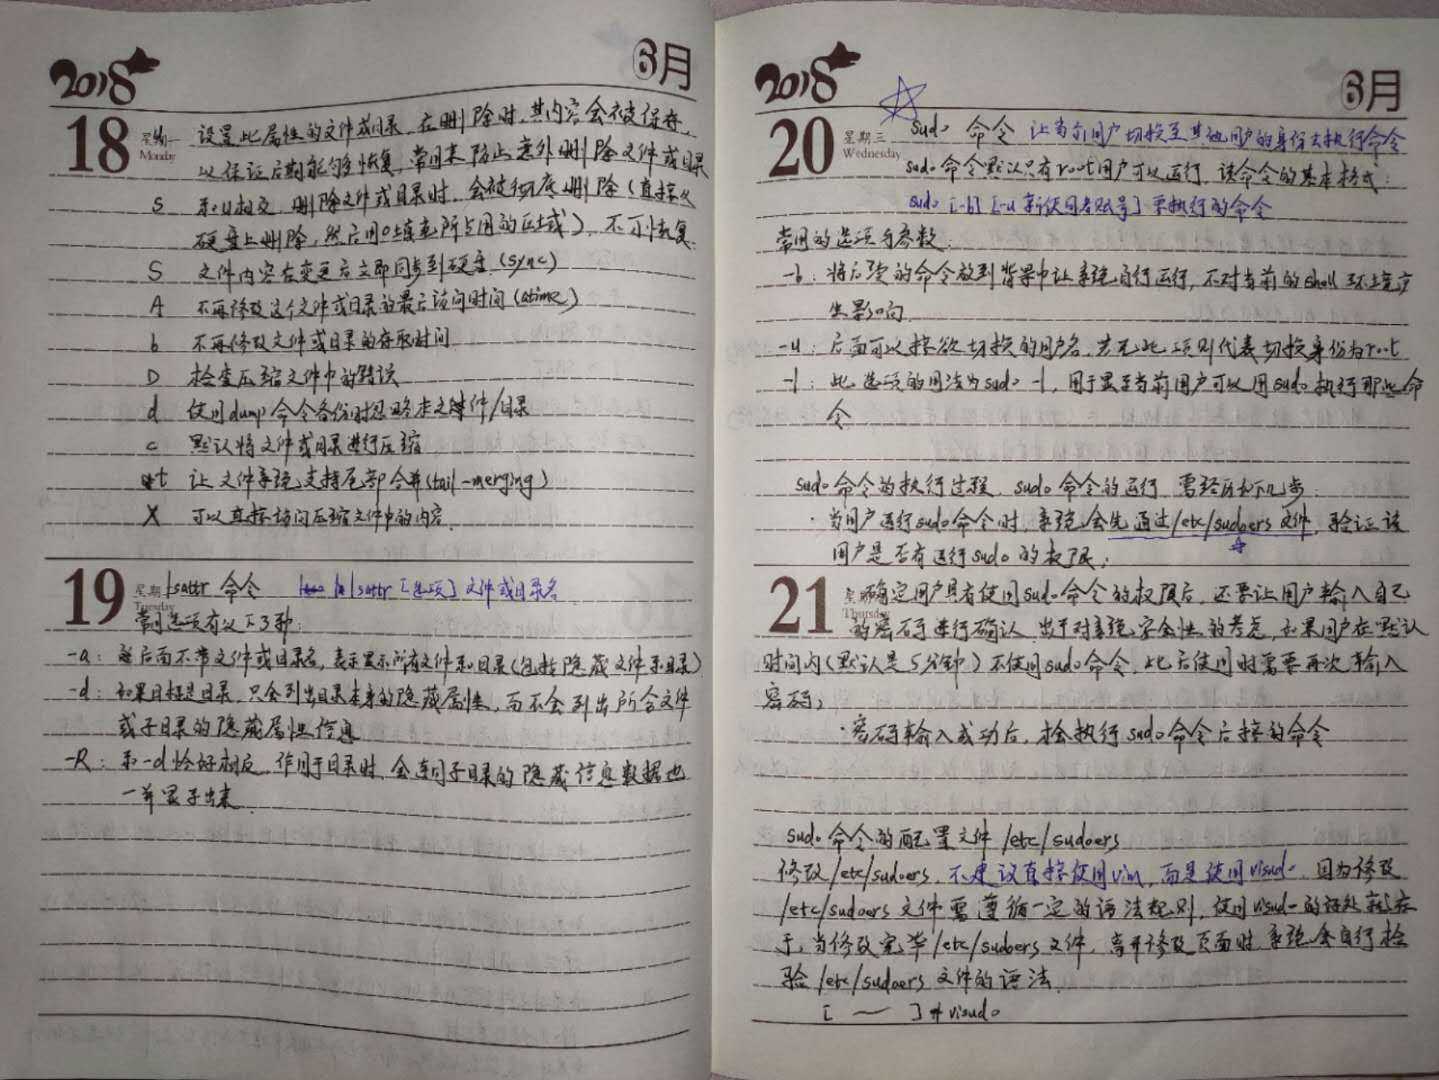 2018
6月
18 星期一 Monday
u 设置此属性的文件或目录，在删除时，其内容会被保存，
以保证后期能够恢复，常用来防止意外删除文件或目录
s 和u相反，删除文件或目录时，会被彻底删除（直接从
硬盘上删除，然后用0填充所占用的区域），不可恢复.
S 文件内容在变更后立即同步到硬盘（sync）
A 不再修改这个文件或目录的最后访问时间（atime）
b 不再修改文件或目录的存取时间
D 检查压缩文件中的错误
d 使用dump命令备份时忽略本文件/目录
c 默认将文件或目录进行压缩
t 让文件系统支持尾部合并（tail-merging）
X 可以直接访问压缩文件中的内容.
19 星期二 Tuesday
lsattr 命令 lsattr [选项] 文件或目录名
常用选项有以下3种:
-a: 后面不带文件或目录名，表示显示所有文件和目录（包括隐藏文件和目录）
-d: 如果目标是目录，只会列出目录本身的隐藏属性，而不会列出所含文件
或子目录的隐藏属性信息
-R: 和-d恰好相反，作用于目录时，会连同子目录的隐藏信息数据也
一并显示出来.
2018
6月
20 星期三 Wednesday
☆ sudo 命令 让当前用户切换至其他用户的身份去执行命令
sudo命令默认只有root用户可以运行，该命令的基本格式:
sudo [-b] [-u 新使用者账号] 要执行的命令
常用的选项与参数:
-b: 将后续的命令放到背景中让系统自行运行，不对当前的shell环境产
生影响.
-u: 后面可以接欲切换的用户名，若无此项则代表切换身份为root
-l: 此选项的用法为sudo -l，用于显示当前用户可以用sudo执行那些命
令
sudo命令的执行过程，sudo命令的运行，需经历如下几步:
·当用户运行sudo命令时，系统会先通过/etc/sudoers文件，验证该
用户是否有运行sudo的权限;
21 星期四 Thursday
·确定用户具有使用sudo命令的权限后，还要让用户输入自己
的密码进行确认，出于对系统安全性的考虑，如果用户在默认
时间内（默认是5分钟）不使用sudo命令，此后使用时需要再次输入
密码;
·密码输入成功后，才会执行sudo命令后接的命令
sudo命令的配置文件/etc/sudoers
修改/etc/sudoers，不建议直接使用vim，而是使用visudo. 因为修改
/etc/sudoers文件需遵循一定的语法规则，使用visudo的好处就在
于，当修改完毕/etc/sudoers文件，离开修改页面时，系统会自行检
验/etc/sudoers文件的语法.
[ ~ ]# visudo